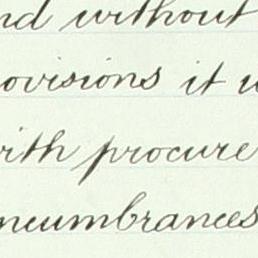 nd without
ovisions it w
ith procure
ncumbrances